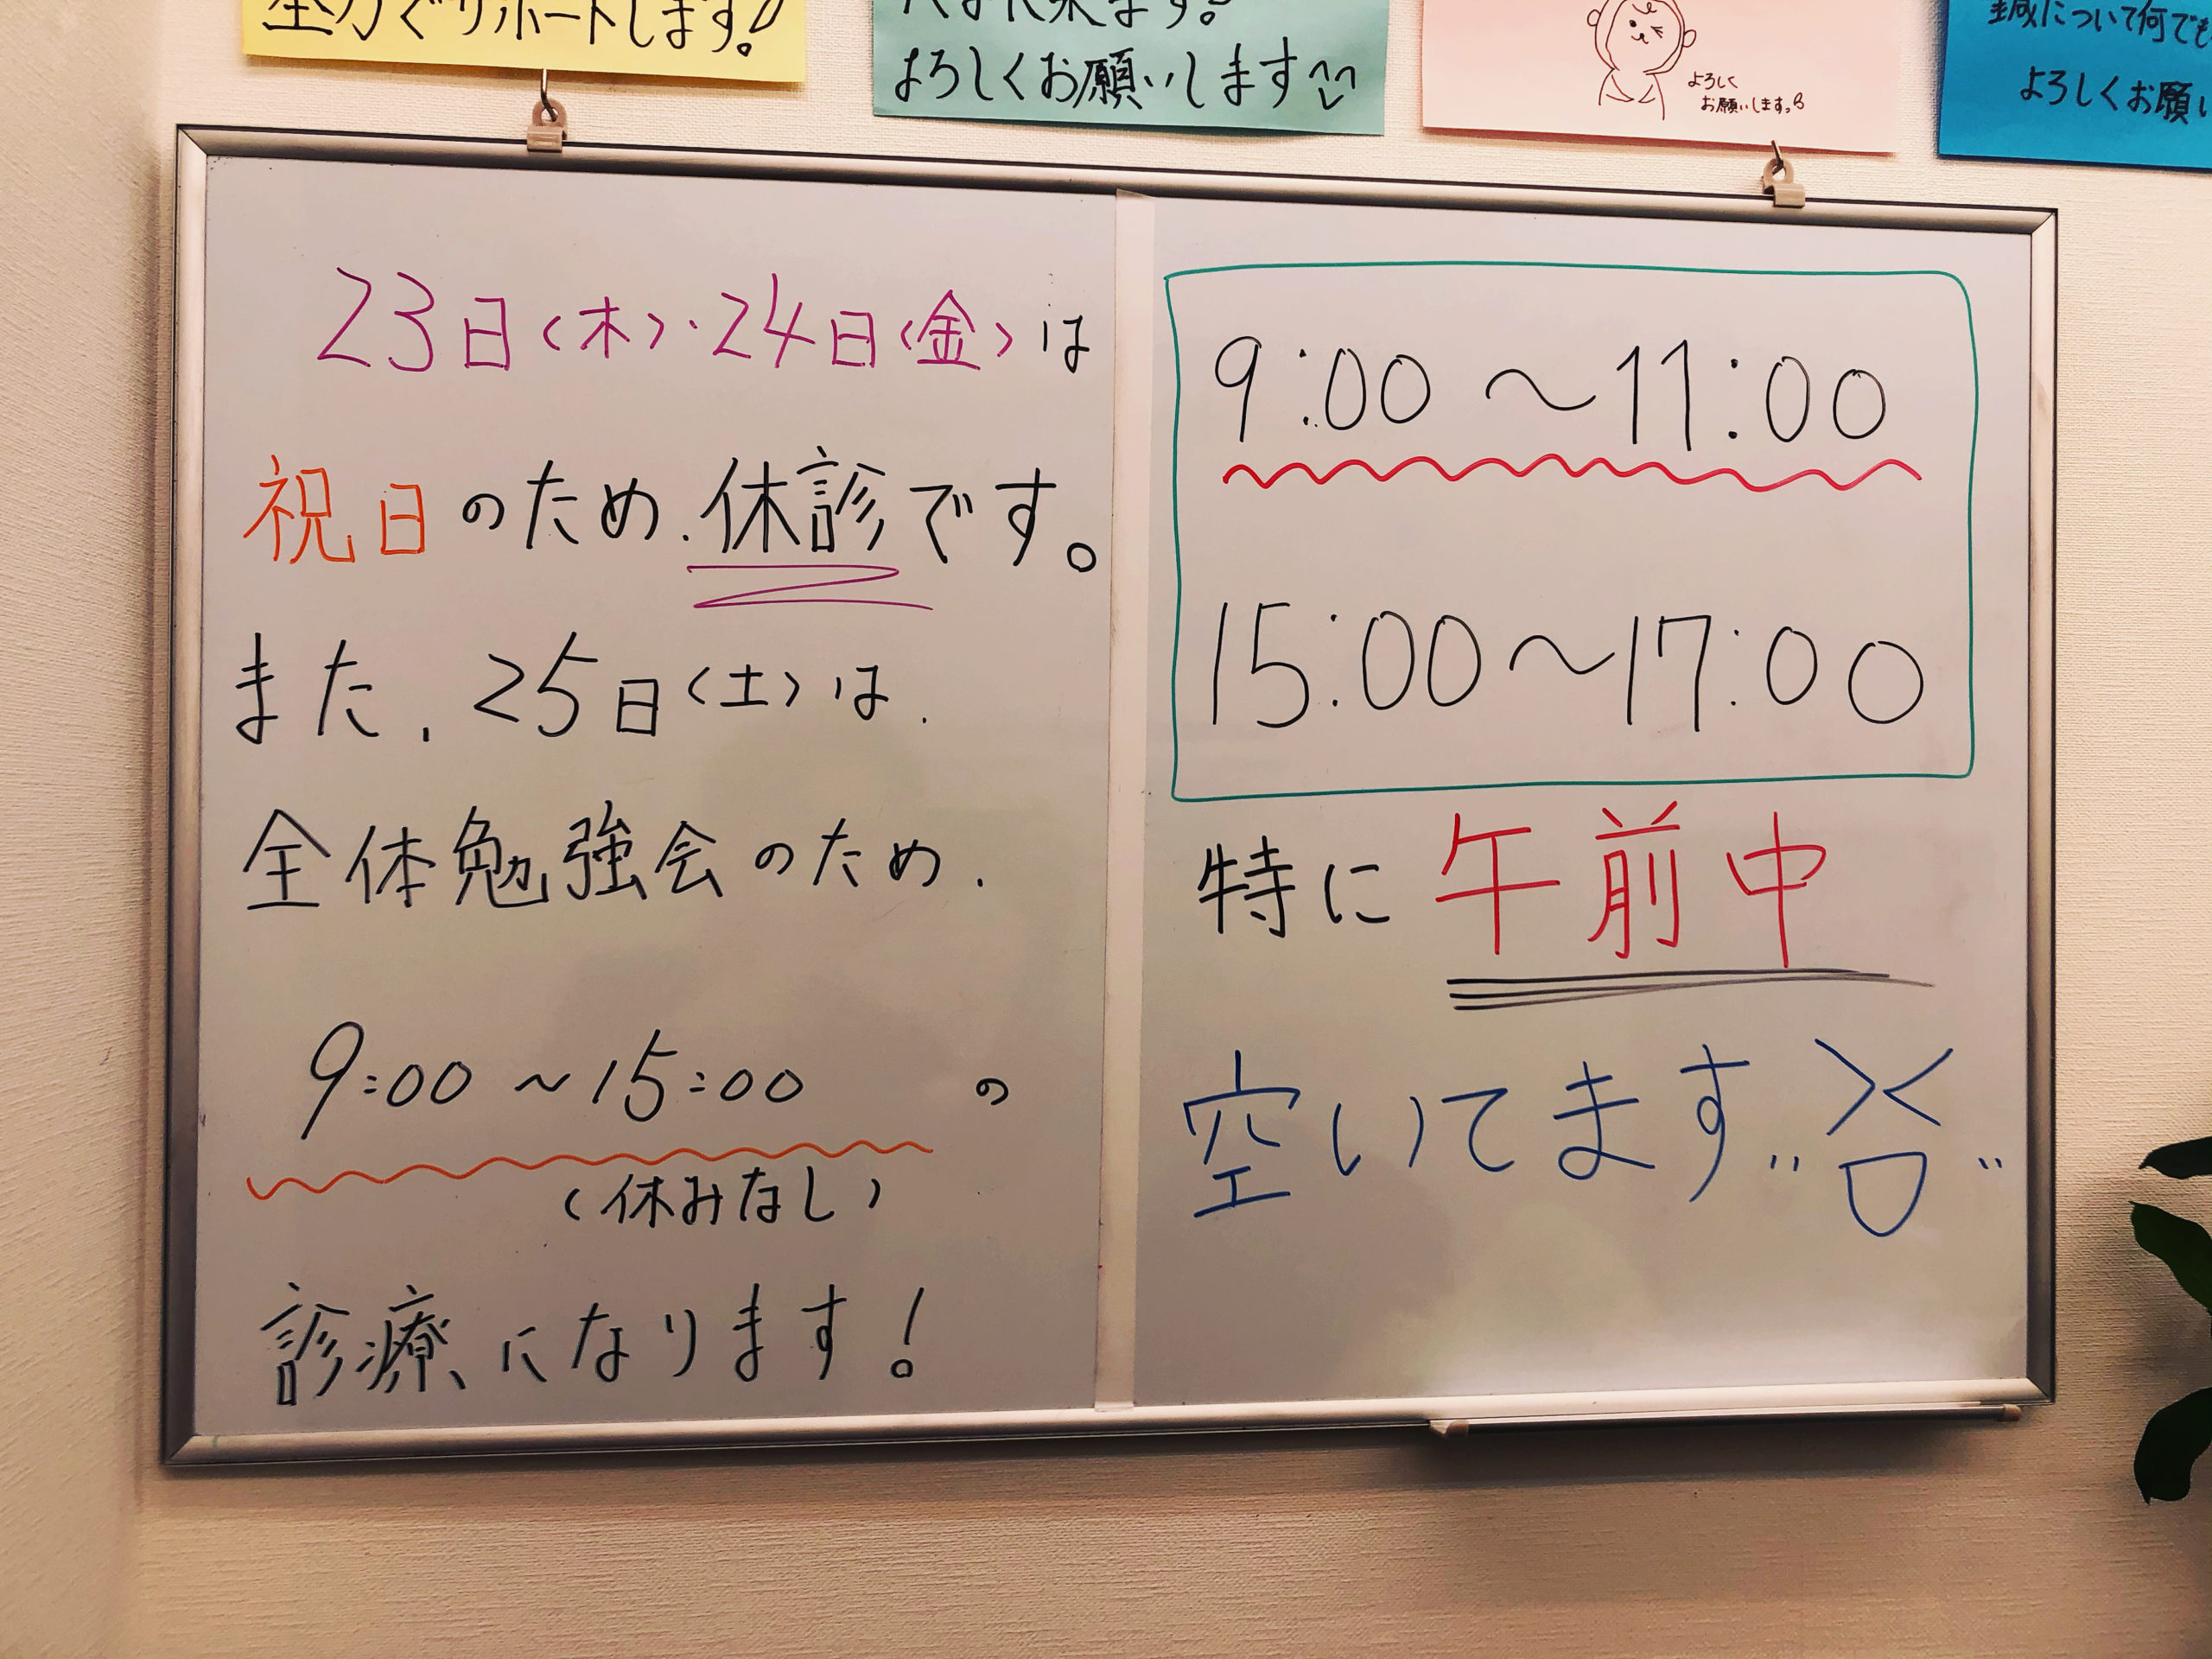 全力でサポートします!
よろしくお願いします^^
よろしく
お願いします。
鍼について何でも
よろしくお願い
23日(木)・24日(金)は
祝日のため、休診です。
また、25日(土)は、
全体勉強会のため、
9:00~15:00の
(休みなし)
診療になります!
9:00~11:00
15:00~17:00
特に午前中
空いてます